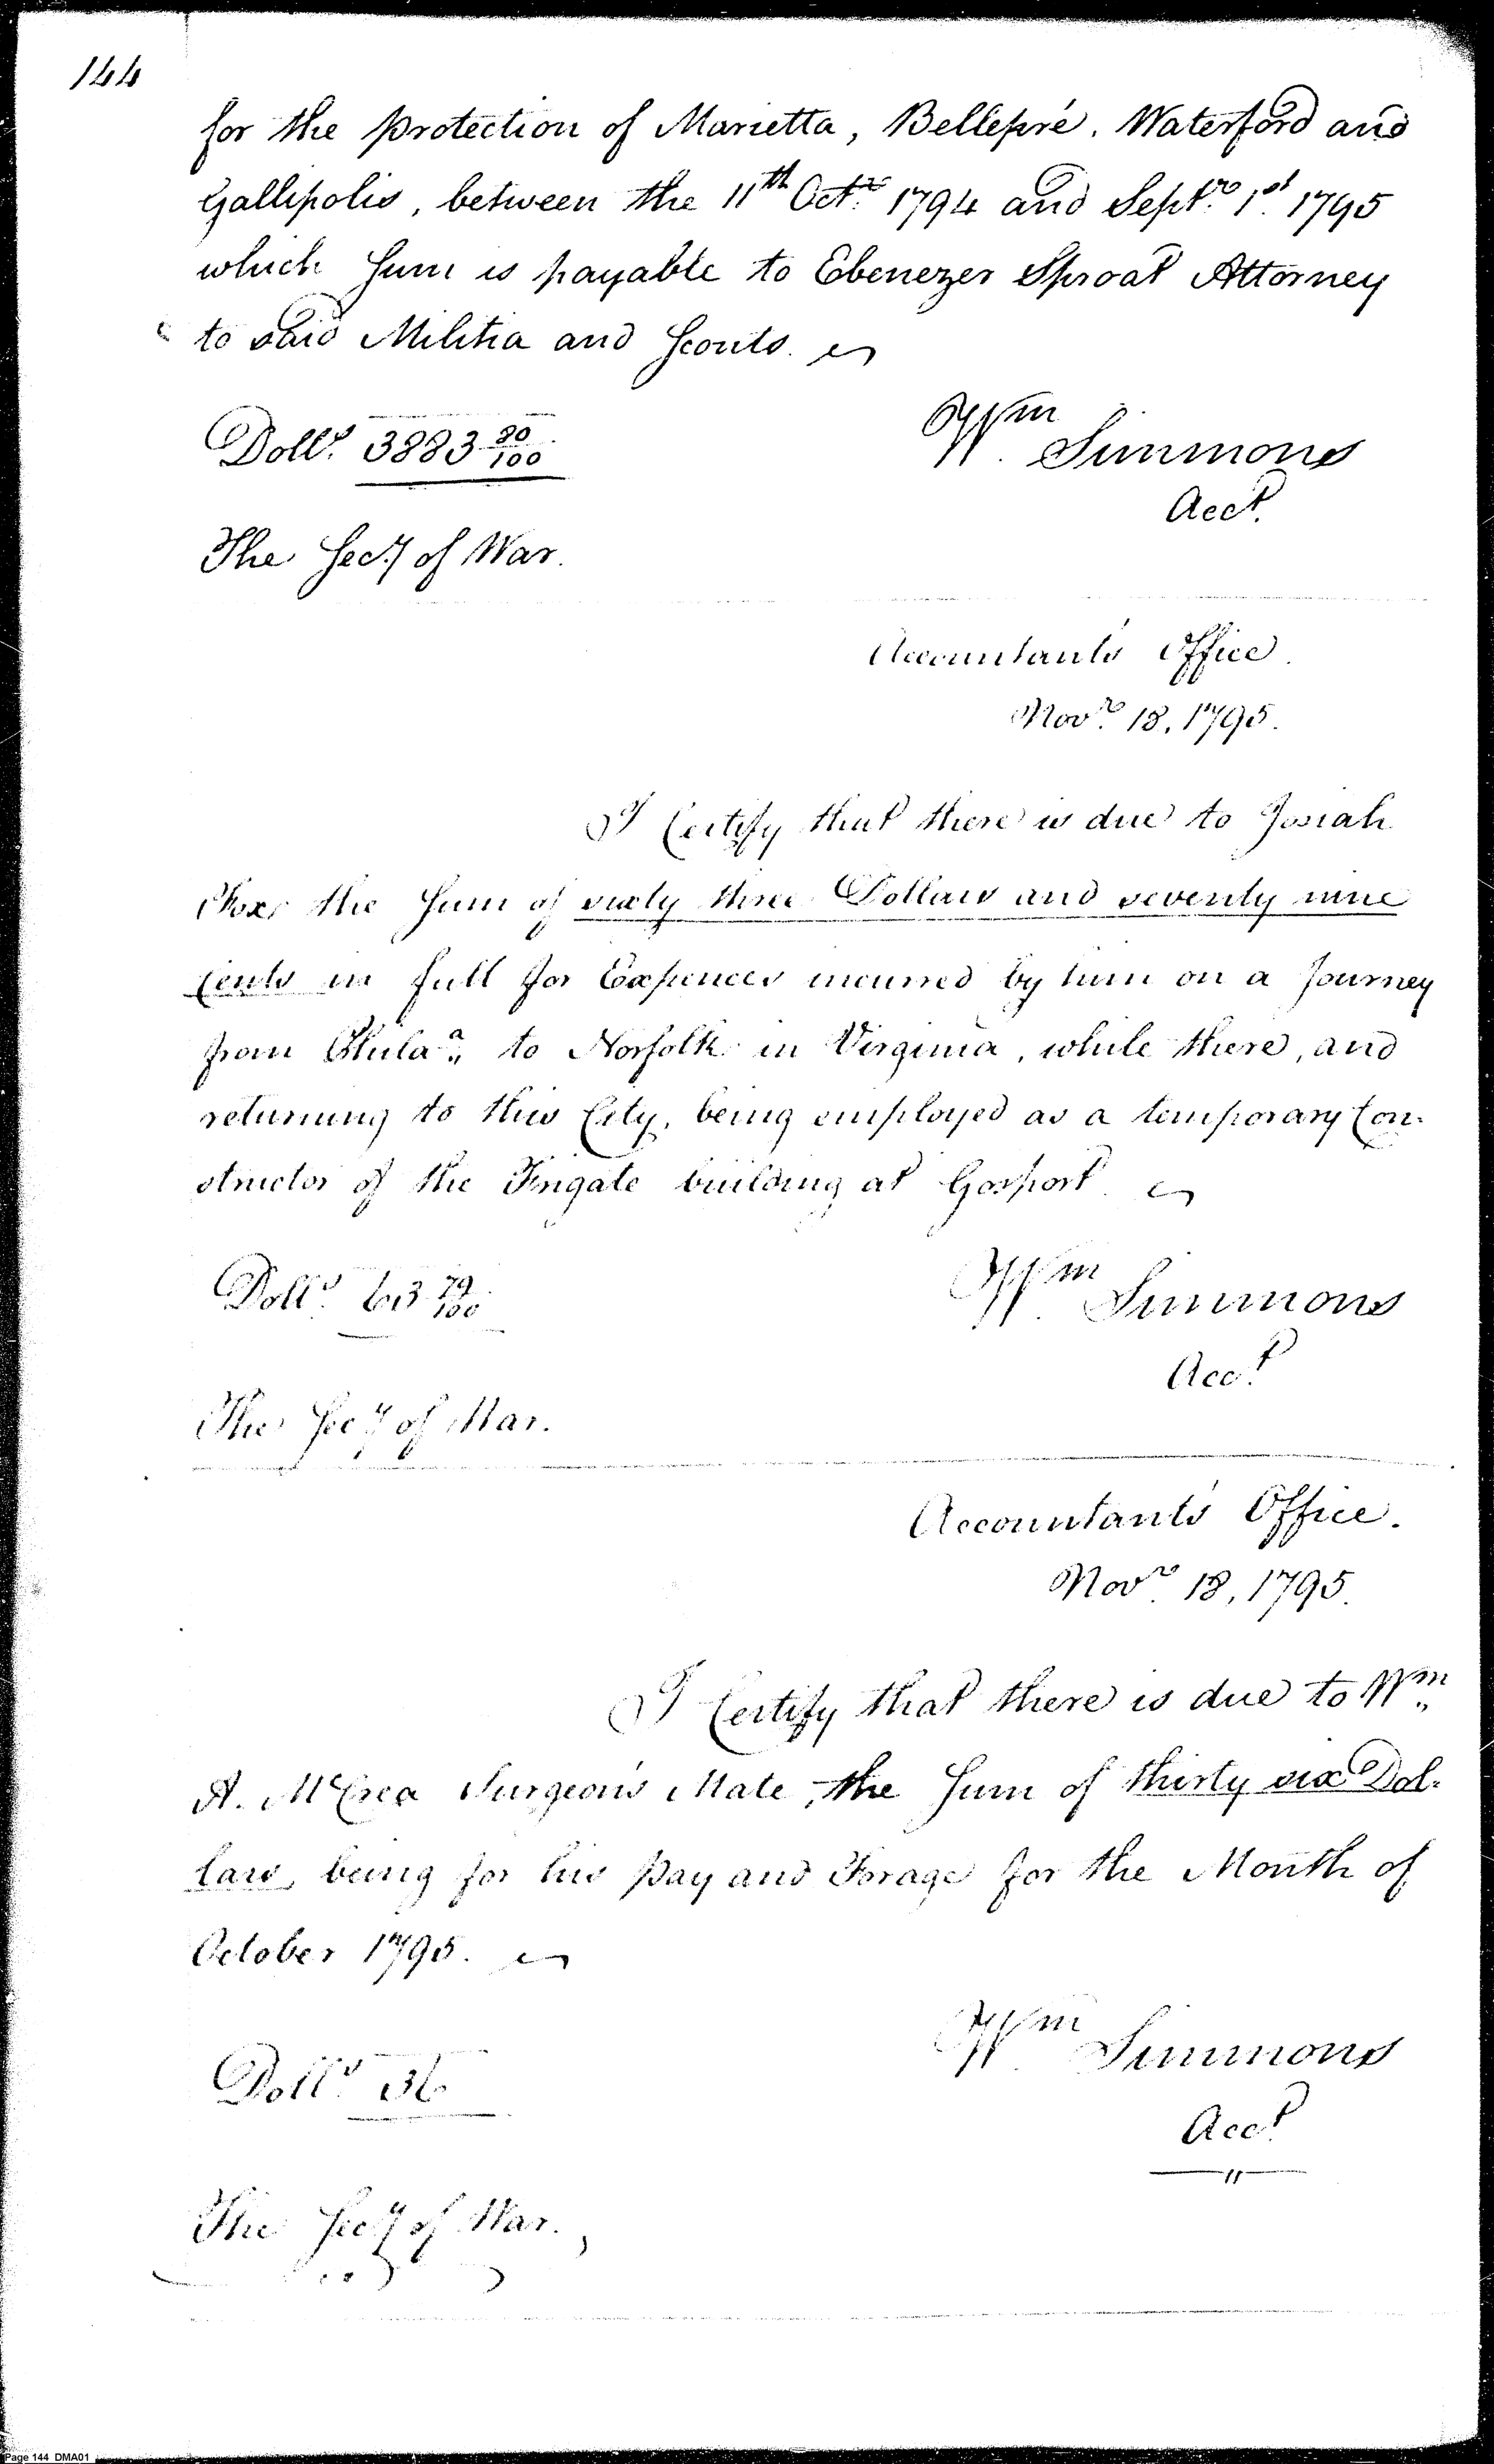 144
for the protection of Marietta, Bellepré, Waterford and
Gallipolis, between the 11th Octr. 1794 and Septr. 1st. 1795
which Sum is payable to Ebenezer Sproat Attorney
to said Militia and Scouts.
Dolls. 3883 80/100
Wm. Simmons
Acct.
The Secy of War.
Accountant's Office.
Novr. 18, 1795.
I Certify that there is due to Josiah
Fox, the Sum of sixty three Dollars and seventy nine
Cents in full for Expences incurred by him on a Journey
from Phila. to Norfolk in Virginia, while there, and
returning to this City, being employed as a temporary Con-
structor of the Frigate building at Gosport.
Dolls. 63 79/100
Wm. Simmons
Acct.
The Secy of War.
Accountant's Office.
Novr. 18, 1795.
I Certify that there is due to Wm.
A. McCrea Surgeon's Mate, the Sum of thirty six Dol-
lars, being for his Pay and Forage for the Month of
October 1795.
Dolls. 36
Wm. Simmons
Acct.
The Secy of War.
Page 144 DMA01